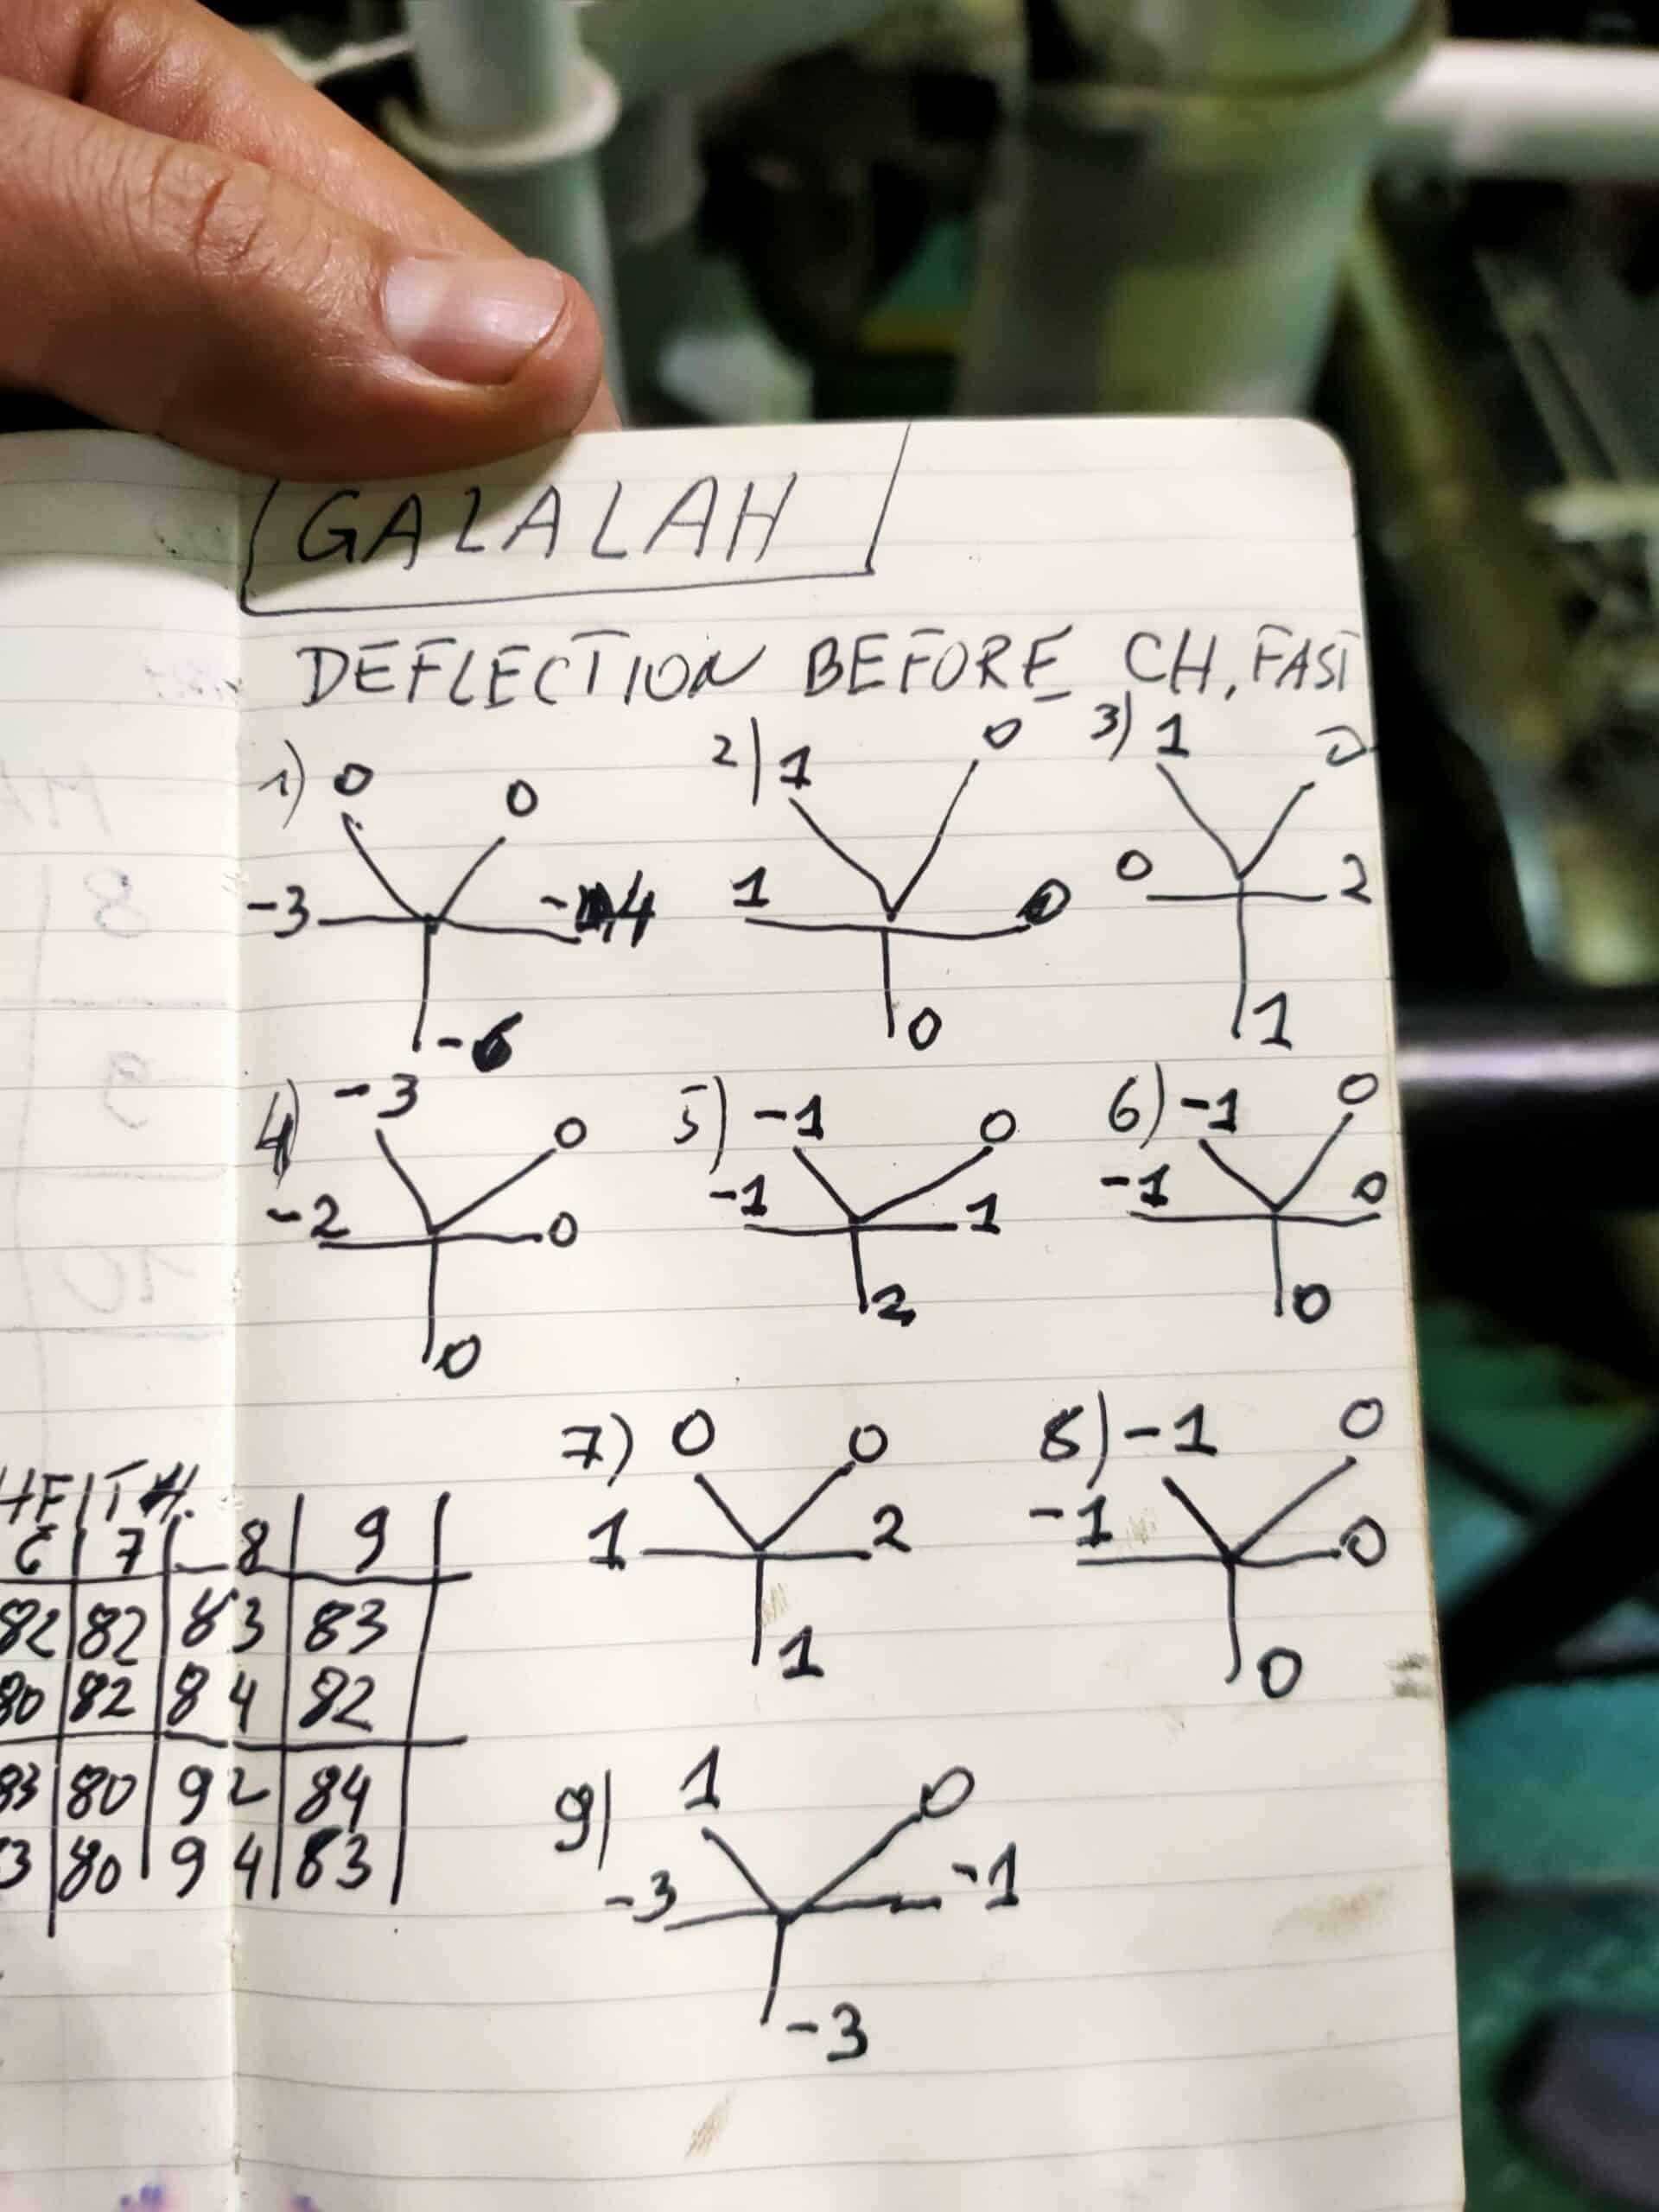 GALALAH
DEFLECTION BEFORE CH, FAST
1) 0 0
-3 -4
-6
2) 1 0
1 0
0
3) 1 0
0 2
1
4) -3 0
-2 0
0
5) -1 0
-1 1
2
6) -1 0
-1 0
0
7) 0 0
1 2
1
8) -1 0
-1 0
0
9) 1 0
-3 -1
-3
6 7 8 9
82 82 83 83
80 82 84 82
83 80 92 84
3 80 94 83